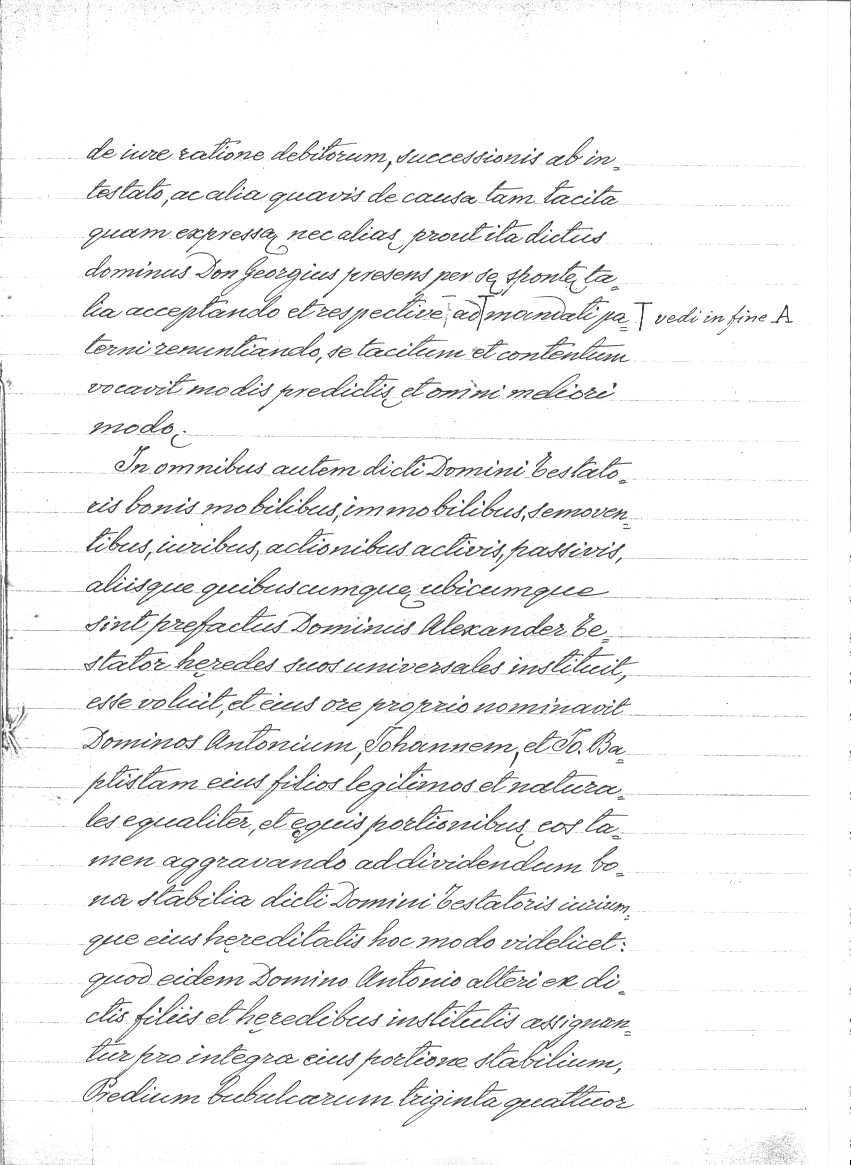 de iure ratione debitorum, successionis ab in=
testato, ac alia quavis de causa tam tacita
quam expressa, nec alias, prout ita dictus
dominus Don Georgius presens per se, sponte, ta=
lia acceptando et respective, ad mandati pa= T vedi in fine A
terni renuntiando, se tacitum et contentum
vocavit modis predictis, et omni meliori
modo.
In omnibus autem dicti Domini Testato=
ris bonis mobilibus, immobilibus, semoven=
tibus, iuribus, actionibus activis, passivis,
aliisque quibuscumque, ubicumque
sint prefactus Dominus Alexander Te=
stator hęredes suos universales instituit,
esse voluit, et eius ore proprio nominavit
Dominos Antonium, Johannem, et Jo. Ba=
ptistam eius filios legitimos et natura=
les equaliter, et ęquis portionibus, eos ta=
men aggravando ad dividendum bo=
na stabilia dicti Domini Testatoris iurium=
que eius hęreditatis hoc modo videlicet:
quod eidem Domino Antonio alteri ex di=
ctis filiis et hęredibus institutis assignan=
tur pro integra eius portione stabilium,
Predium bubulcarum triginta quattuor